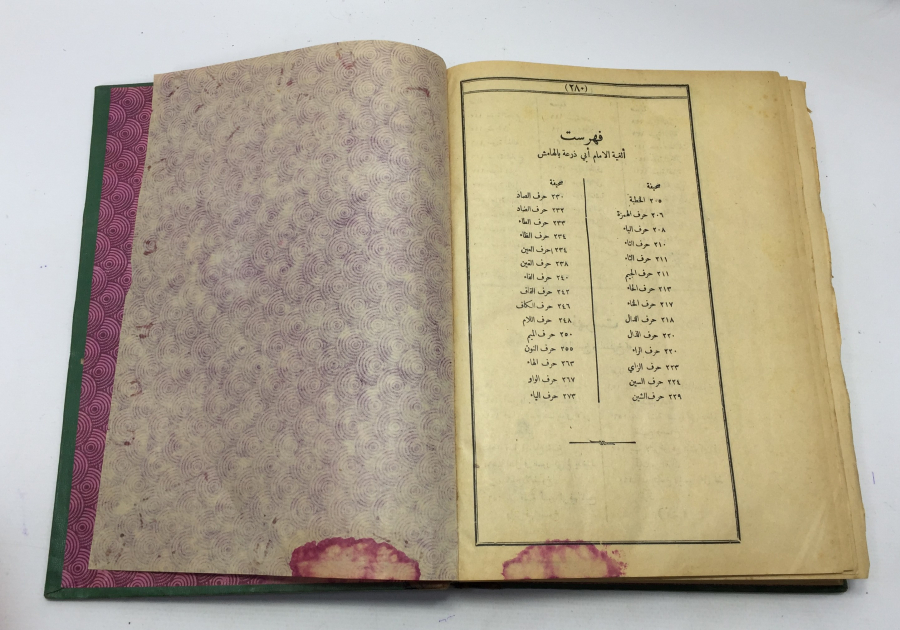 (٢٨٠)
فهرست
ألفية الامام أبي زرعة بالهامش
صحيفة
٢٠٥ الخطبة
٢٠٦ حرف الهمزة
٢٠٨ حرف الباء
٢١٠ حرف التاء
٢١١ حرف الثاء
٢١١ حرف الجيم
٢١٣ حرف الحاء
٢١٧ حرف الخاء
٢١٨ حرف الدال
٢٢٠ حرف الذال
٢٢٠ حرف الراء
٢٢٣ حرف الزاي
٢٢٤ حرف السين
٢٢٩ حرف الشين
صحيفة
٢٣٠ حرف الصاد
٢٣٢ حرف الضاد
٢٣٣ حرف الطاء
٢٣٤ حرف الظاء
٢٣٤ حرف العين
٢٣٨ حرف الغين
٢٤٠ حرف الفاء
٢٤٢ حرف القاف
٢٤٦ حرف الكاف
٢٤٨ حرف اللام
٢٥٠ حرف الميم
٢٥٥ حرف النون
٢٦٣ حرف الهاء
٢٦٧ حرف الواو
٢٧٣ حرف الياء